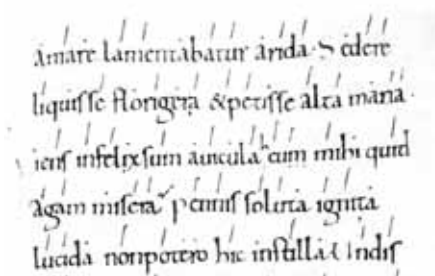 amare lamentabatur arida · Sedere
liquisse florigera &petisse alta maria ·
iens infelix sum auicula cum mihi quid
agam misera pennis soluta ignita
lucida nonpotero hic instilla Indis